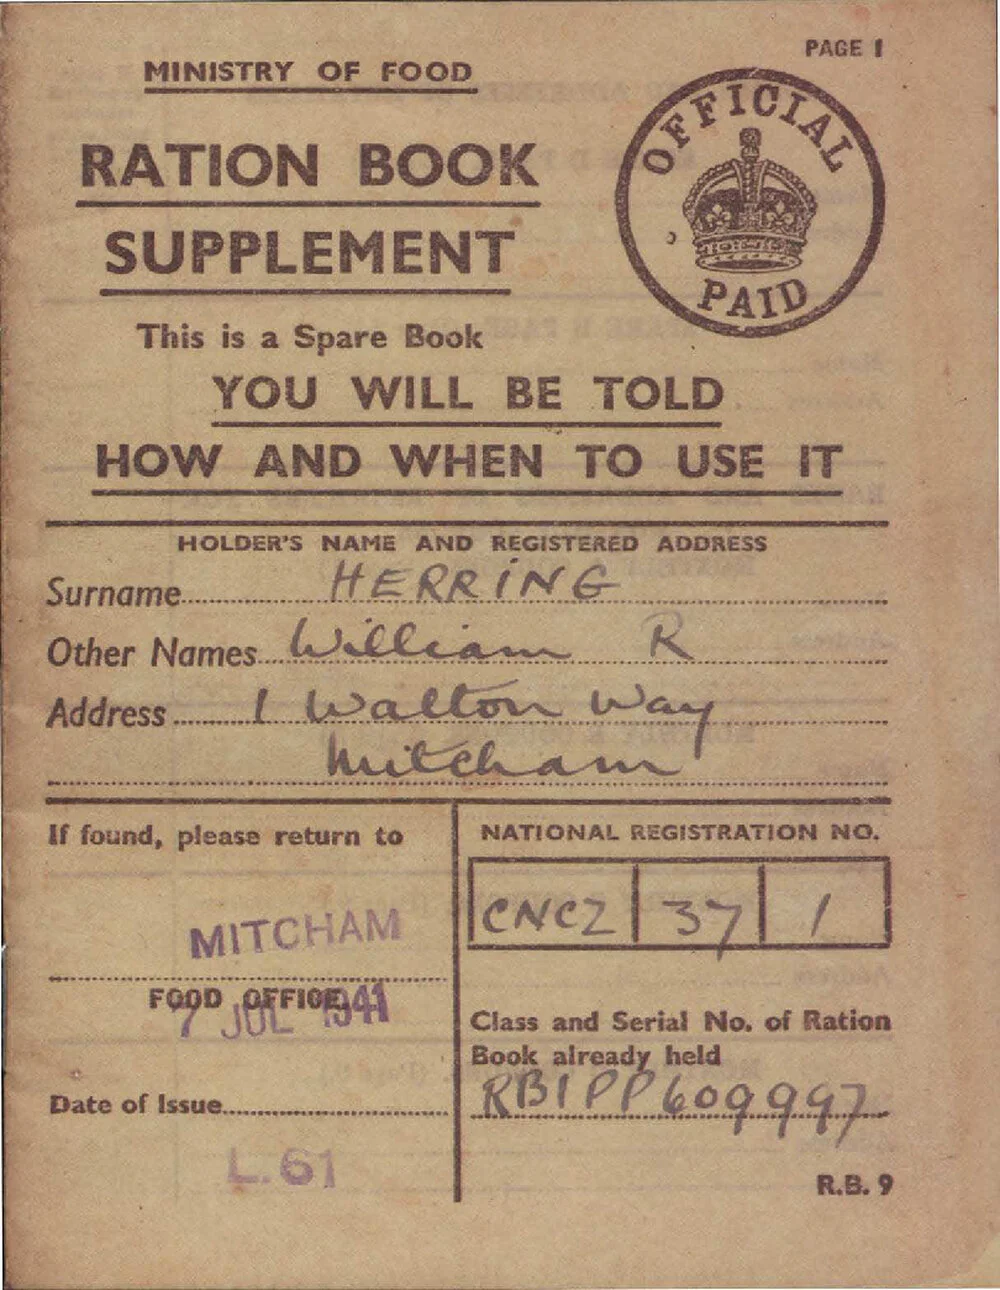 PAGE 1
MINISTRY OF FOOD
RATION BOOK
SUPPLEMENT
OFFICIAL
PAID
This is a Spare Book
YOU WILL BE TOLD
HOW AND WHEN TO USE IT
HOLDER'S NAME AND REGISTERED ADDRESS
Surname HERRING
Other Names William R
Address 1 Walton Way
Mitcham
If found, please return to
MITCHAM
FOOD OFFICE.
7 JUL 1941
Date of Issue
L.61
NATIONAL REGISTRATION NO.
CNCZ 37 1
Class and Serial No. of Ration
Book already held
RB1PP609997
R.B. 9